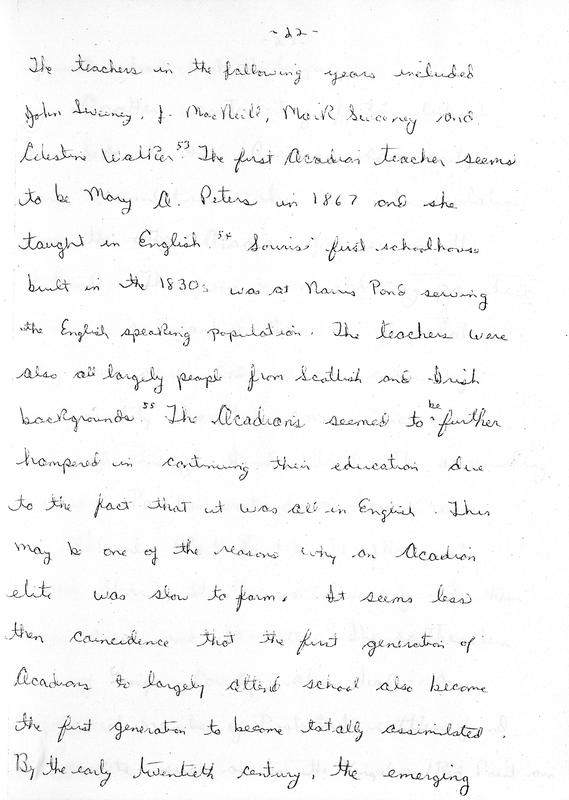 - 22 -
The teachers in the following years included
John Sweeney, J. MacNeill, Mark Sweeney and
Celestine Walker.⁵³ The first Acadian teacher seems
to be Mary A. Peters in 1867 and she
taught in English.⁵⁴ Souris' first schoolhouse
built in the 1830s was at Norris Pond serving
the English speaking population. The teachers were
also all largely people from Scottish and Irish
backgrounds.⁵⁵ The Acadians seemed to be further
hampered in continuing their education due
to the fact that it was all in English. This
may be one of the reasons why an Acadian
elite was slow to form. It seems less
then coincidence that the first generation of
Acadians to largely attend school also become
the first generation to become totally assimilated.
By the early twentieth century, the emerging